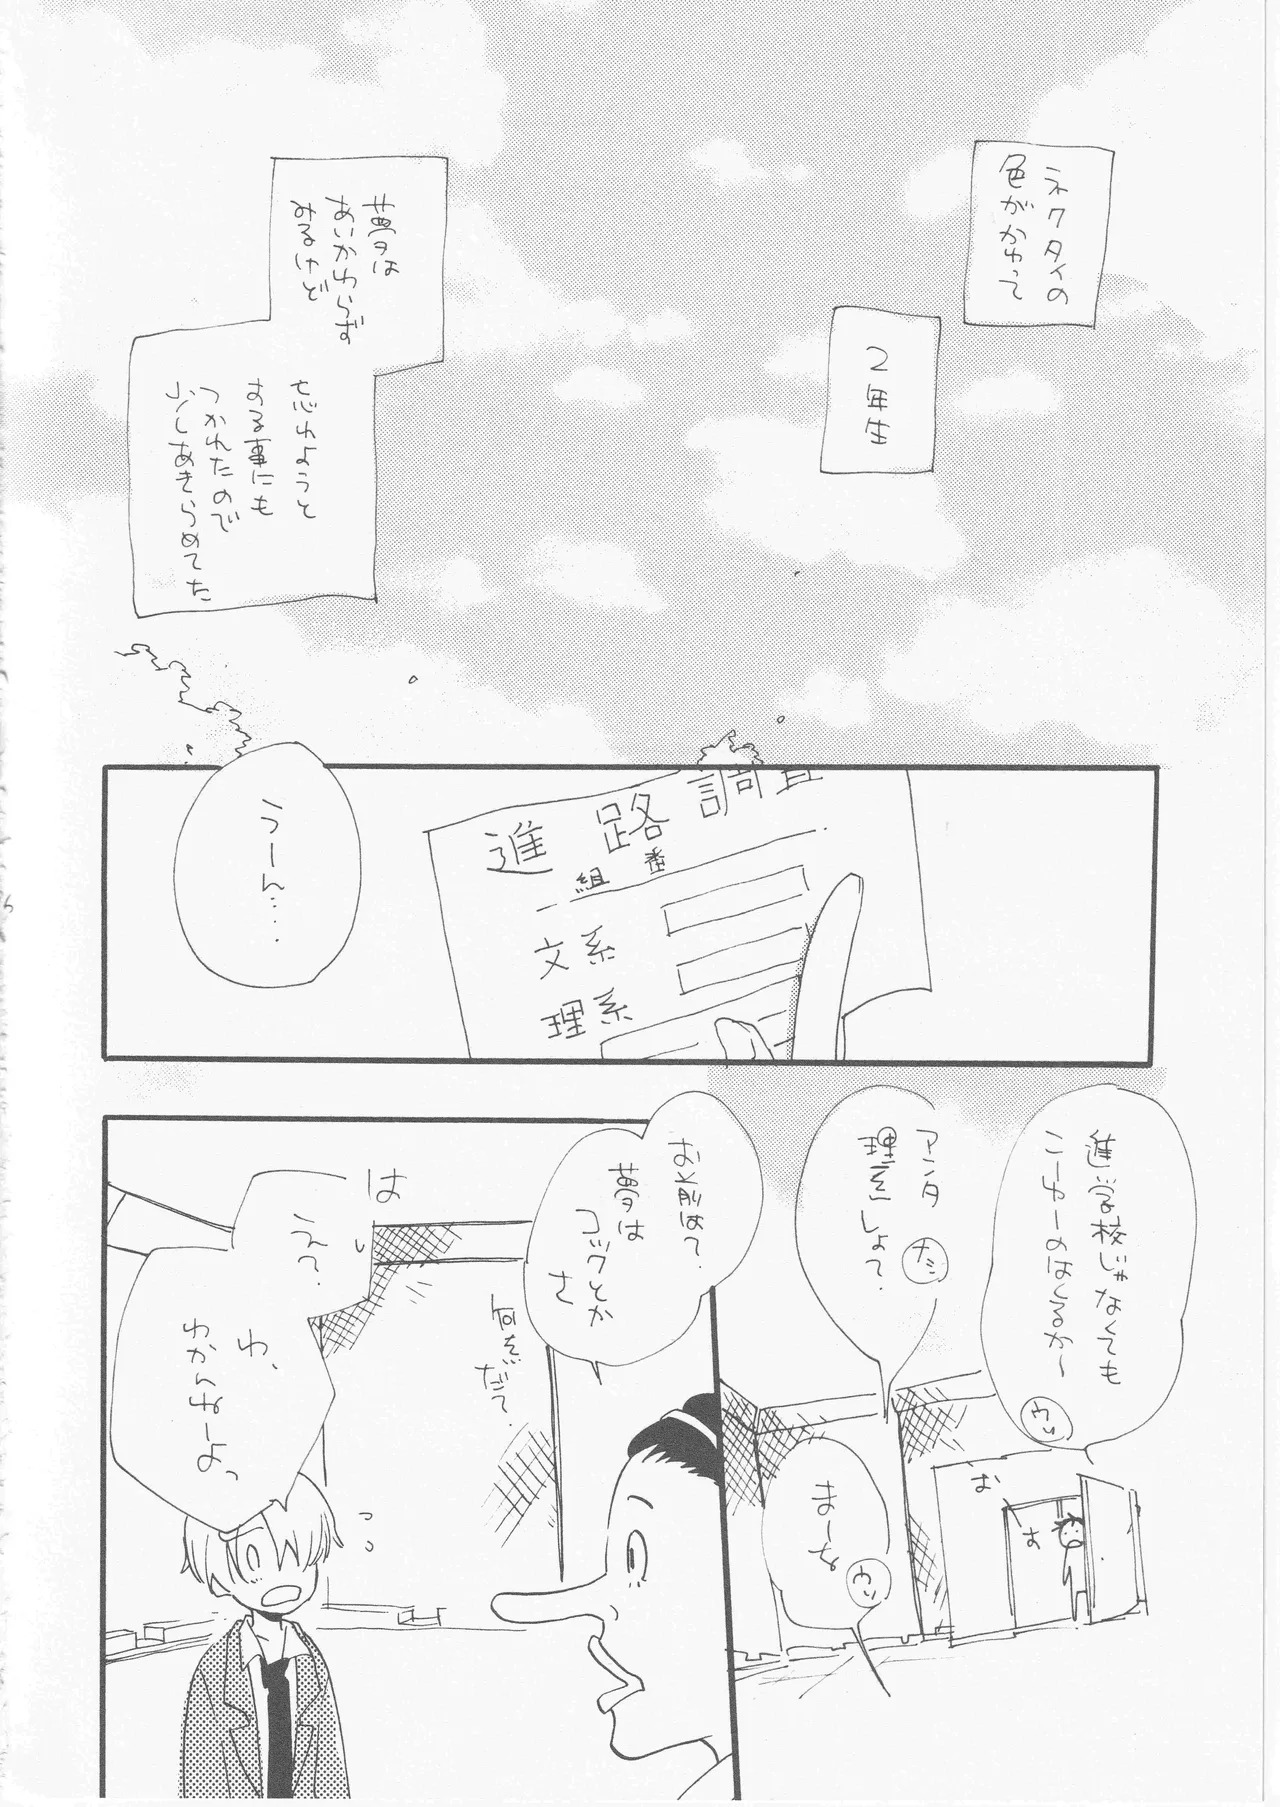 ネクタイの
色がかわって
2年生
夢は
あいかわらず
みるけど
忘れようと
する事にも
つかれたので
少しあきらめてた
進路調査
組 番
文系
理系
うーん…
進学校じゃなくても
こーゆーのはくるか〜
ウソ
アンタ
理系しょ?
ナミ
お
す
まーな
ウソ
お前は?
夢は
コックとか
さ
何系だて?
は
えっ?
わ、
わかんねーよっ